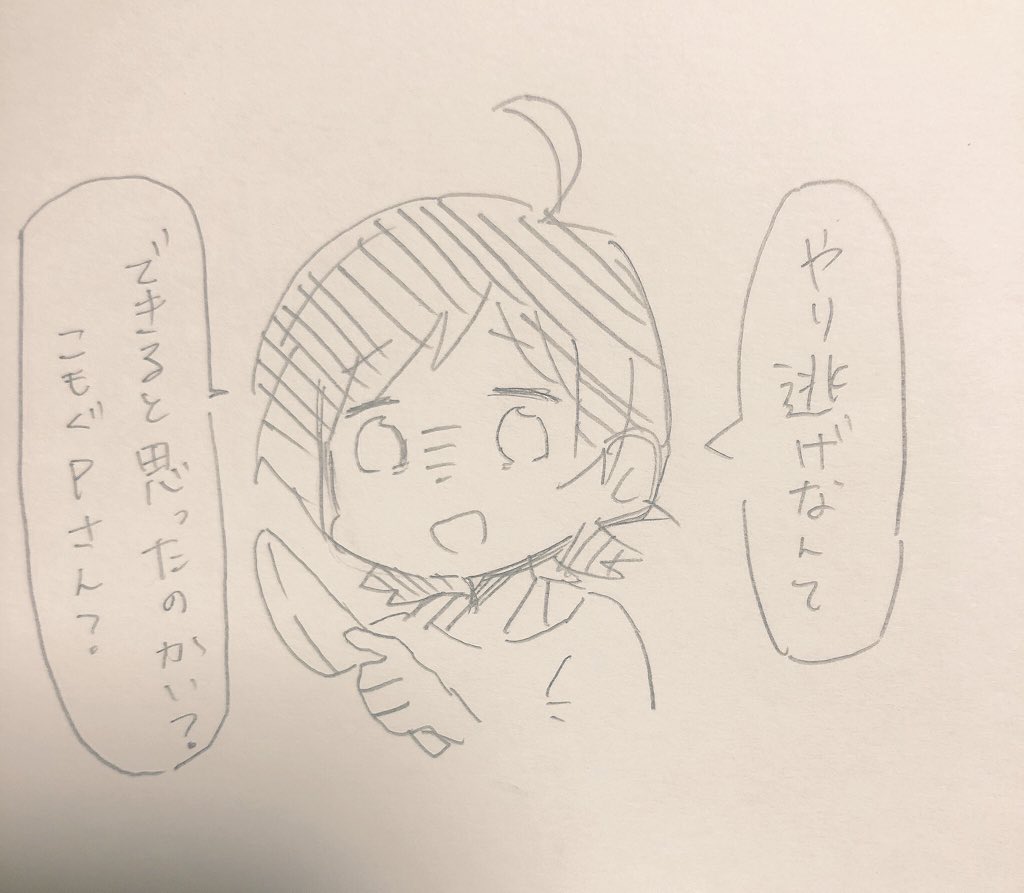 やり逃げなんて
できると思ったのかい?
こもぐPさん?